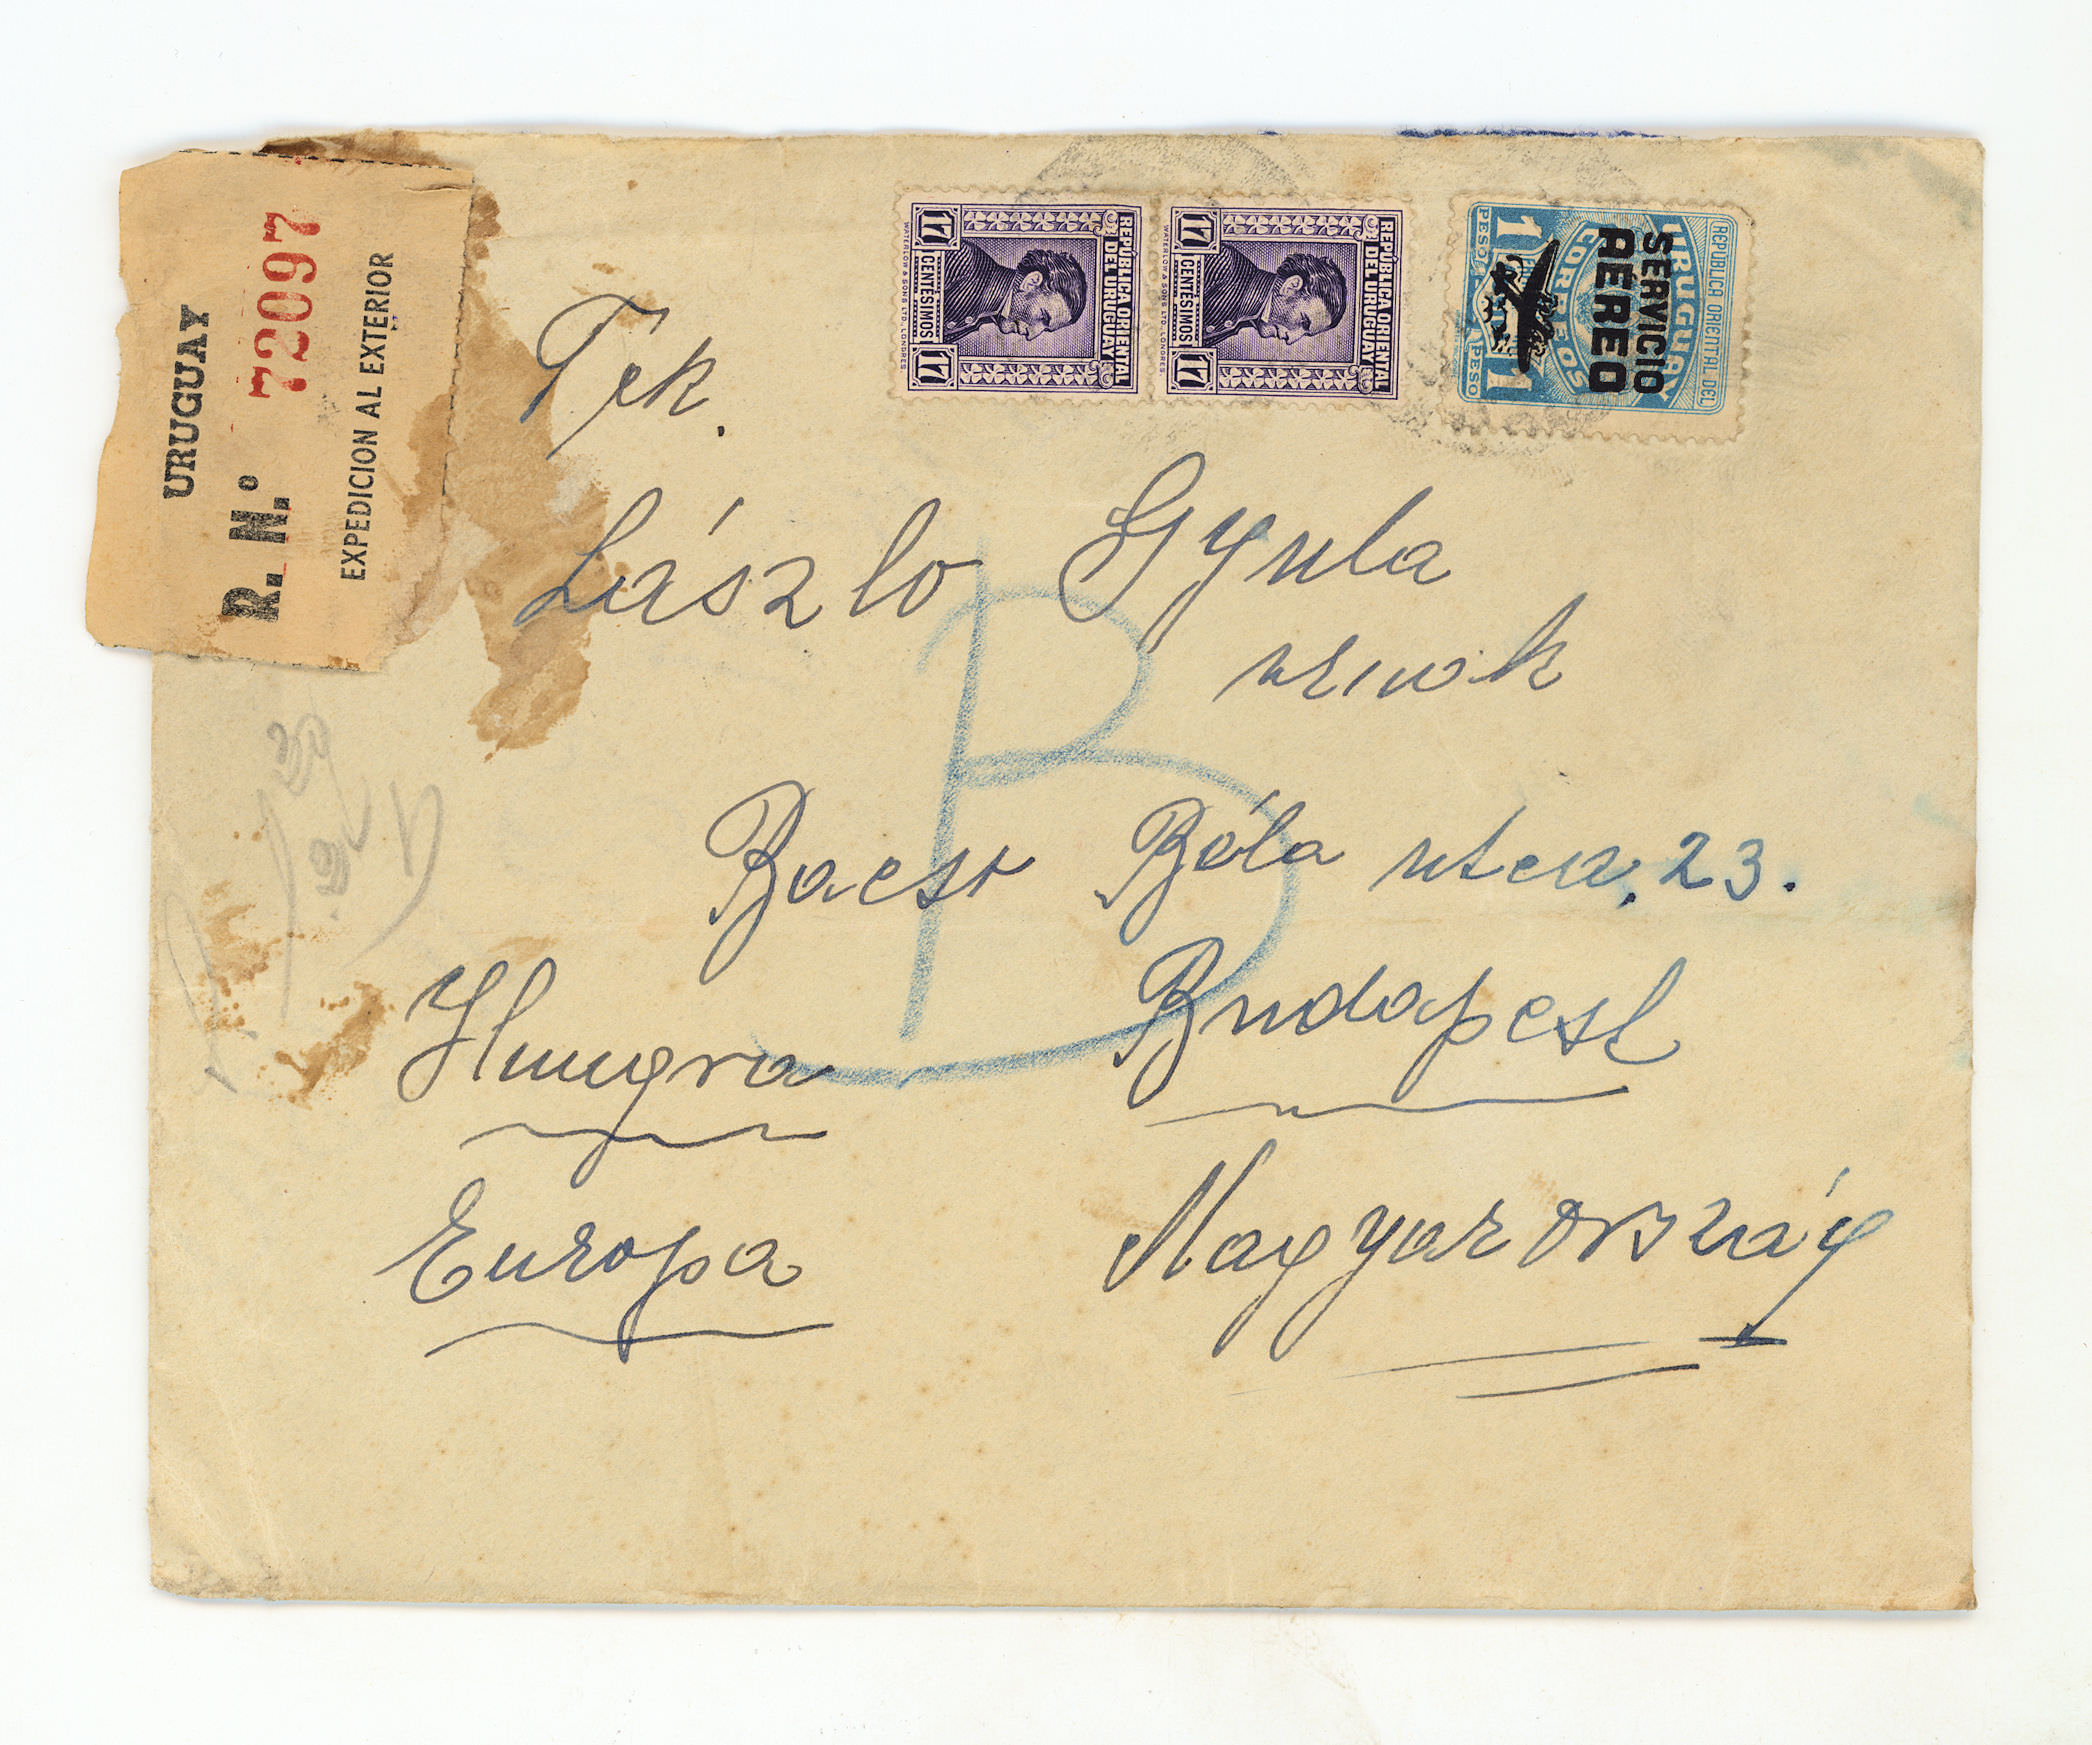 URUGUAY
R. N.º 72097
EXPEDICION AL EXTERIOR
REPÚBLICA ORIENTAL
DEL URUGUAY
17 CENTESIMOS 17
WATERLOW & SONS LTD. LONDRES
REPÚBLICA ORIENTAL
DEL URUGUAY
17 CENTESIMOS 17
WATERLOW & SONS LTD. LONDRES
REPUBLICA ORIENTAL DEL
URUGUAY
CORREOS
SERVICIO
AÉREO
1 1
PESO PESO
Tek.
László Gyula
urnak
B
Bacsó Béla utca. 23.
Hungra Budapest
Europa Magyarország